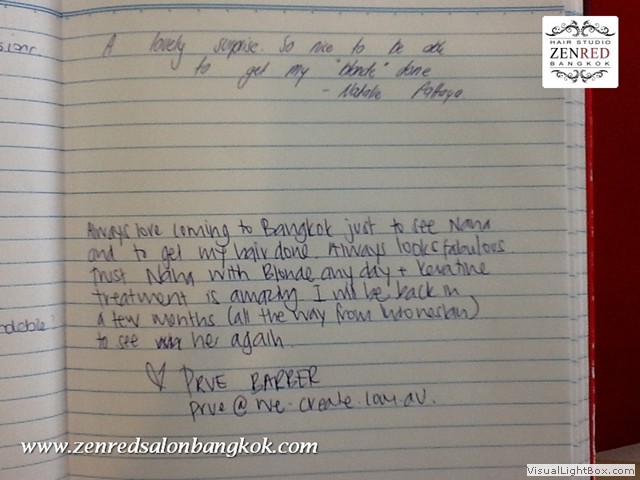 HAIR STUDIO
ZENRED
BANGKOK
A lovely surprise. So nice to be able
to get my "blonde" done
- Natalie Pattaya
Always love coming to Bangkok just to see Nana
and to get my hair done. Always looks fabulous
Trust Nana with Blonde any day + Keratine
treatment is amazing I will be back in
a few months (all the way from Indonesian)
to see her again.
PRVE BARBER
www.zenredsalonbangkok.com
VisualLightBox.com